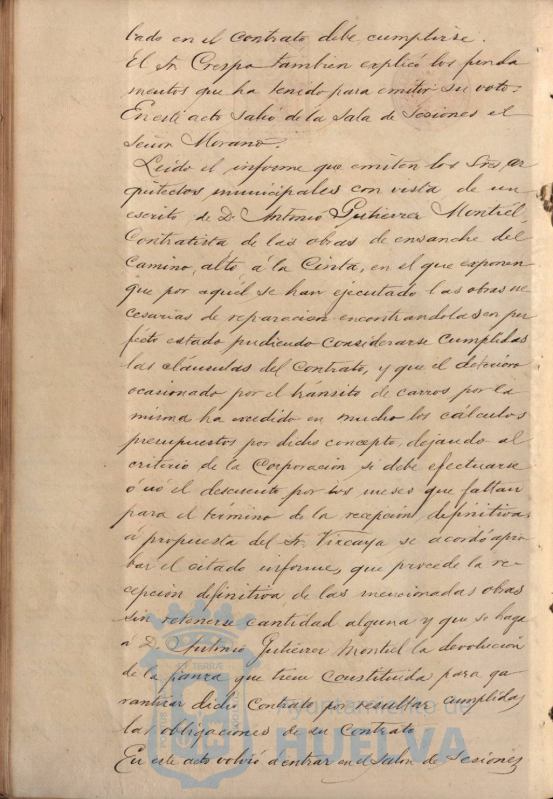 bado en el contrato debe cumplirse.
El Sr. Crespo tambien explicó los funda
mentos que ha tenido para emitir su voto.
En este acto salió de la Sala de Sesiones el
Señor Morano.
Leido el informe que emiten los Sres. ar
quitectos municipales con vista de un
escrito de D. Antonio Gutierrez Montiel,
Contratista de las obras de ensanche del
Camino, alto á la Cinta, en el que exponen
que por aquél se han ejecutado las obras ne
cesarias de reparacion encontrandolas en per
fecto estado pudiendo considerarse cumplidas
las cláusulas del Contrato, y que el deterioro
ocasionado por el tránsito de carros por la
misma ha excedido en mucho los cálculos
presupuestos por dicho concepto, dejando al
criterio de la Corporación si debe efectuarse
ó nó el descuento por los meses que faltan
para el término de la recepción definitiva,
á propuesta del Sr. Vizcaya se acordó apro
bar el citado informe, que procede la re
cepción definitiva de las mencionadas obras
sin retenerse cantidad alguna y que se haga
á D. Antonio Gutierrez Montiel la devolución
de la fianza que tiene constituida para ga
rantizar dicho Contrato por resultar cumplidas
las obligaciones de su Contrato
En este acto volvió á entrar en el Salon de Sesiones
Ayuntamiento de
HUELVA